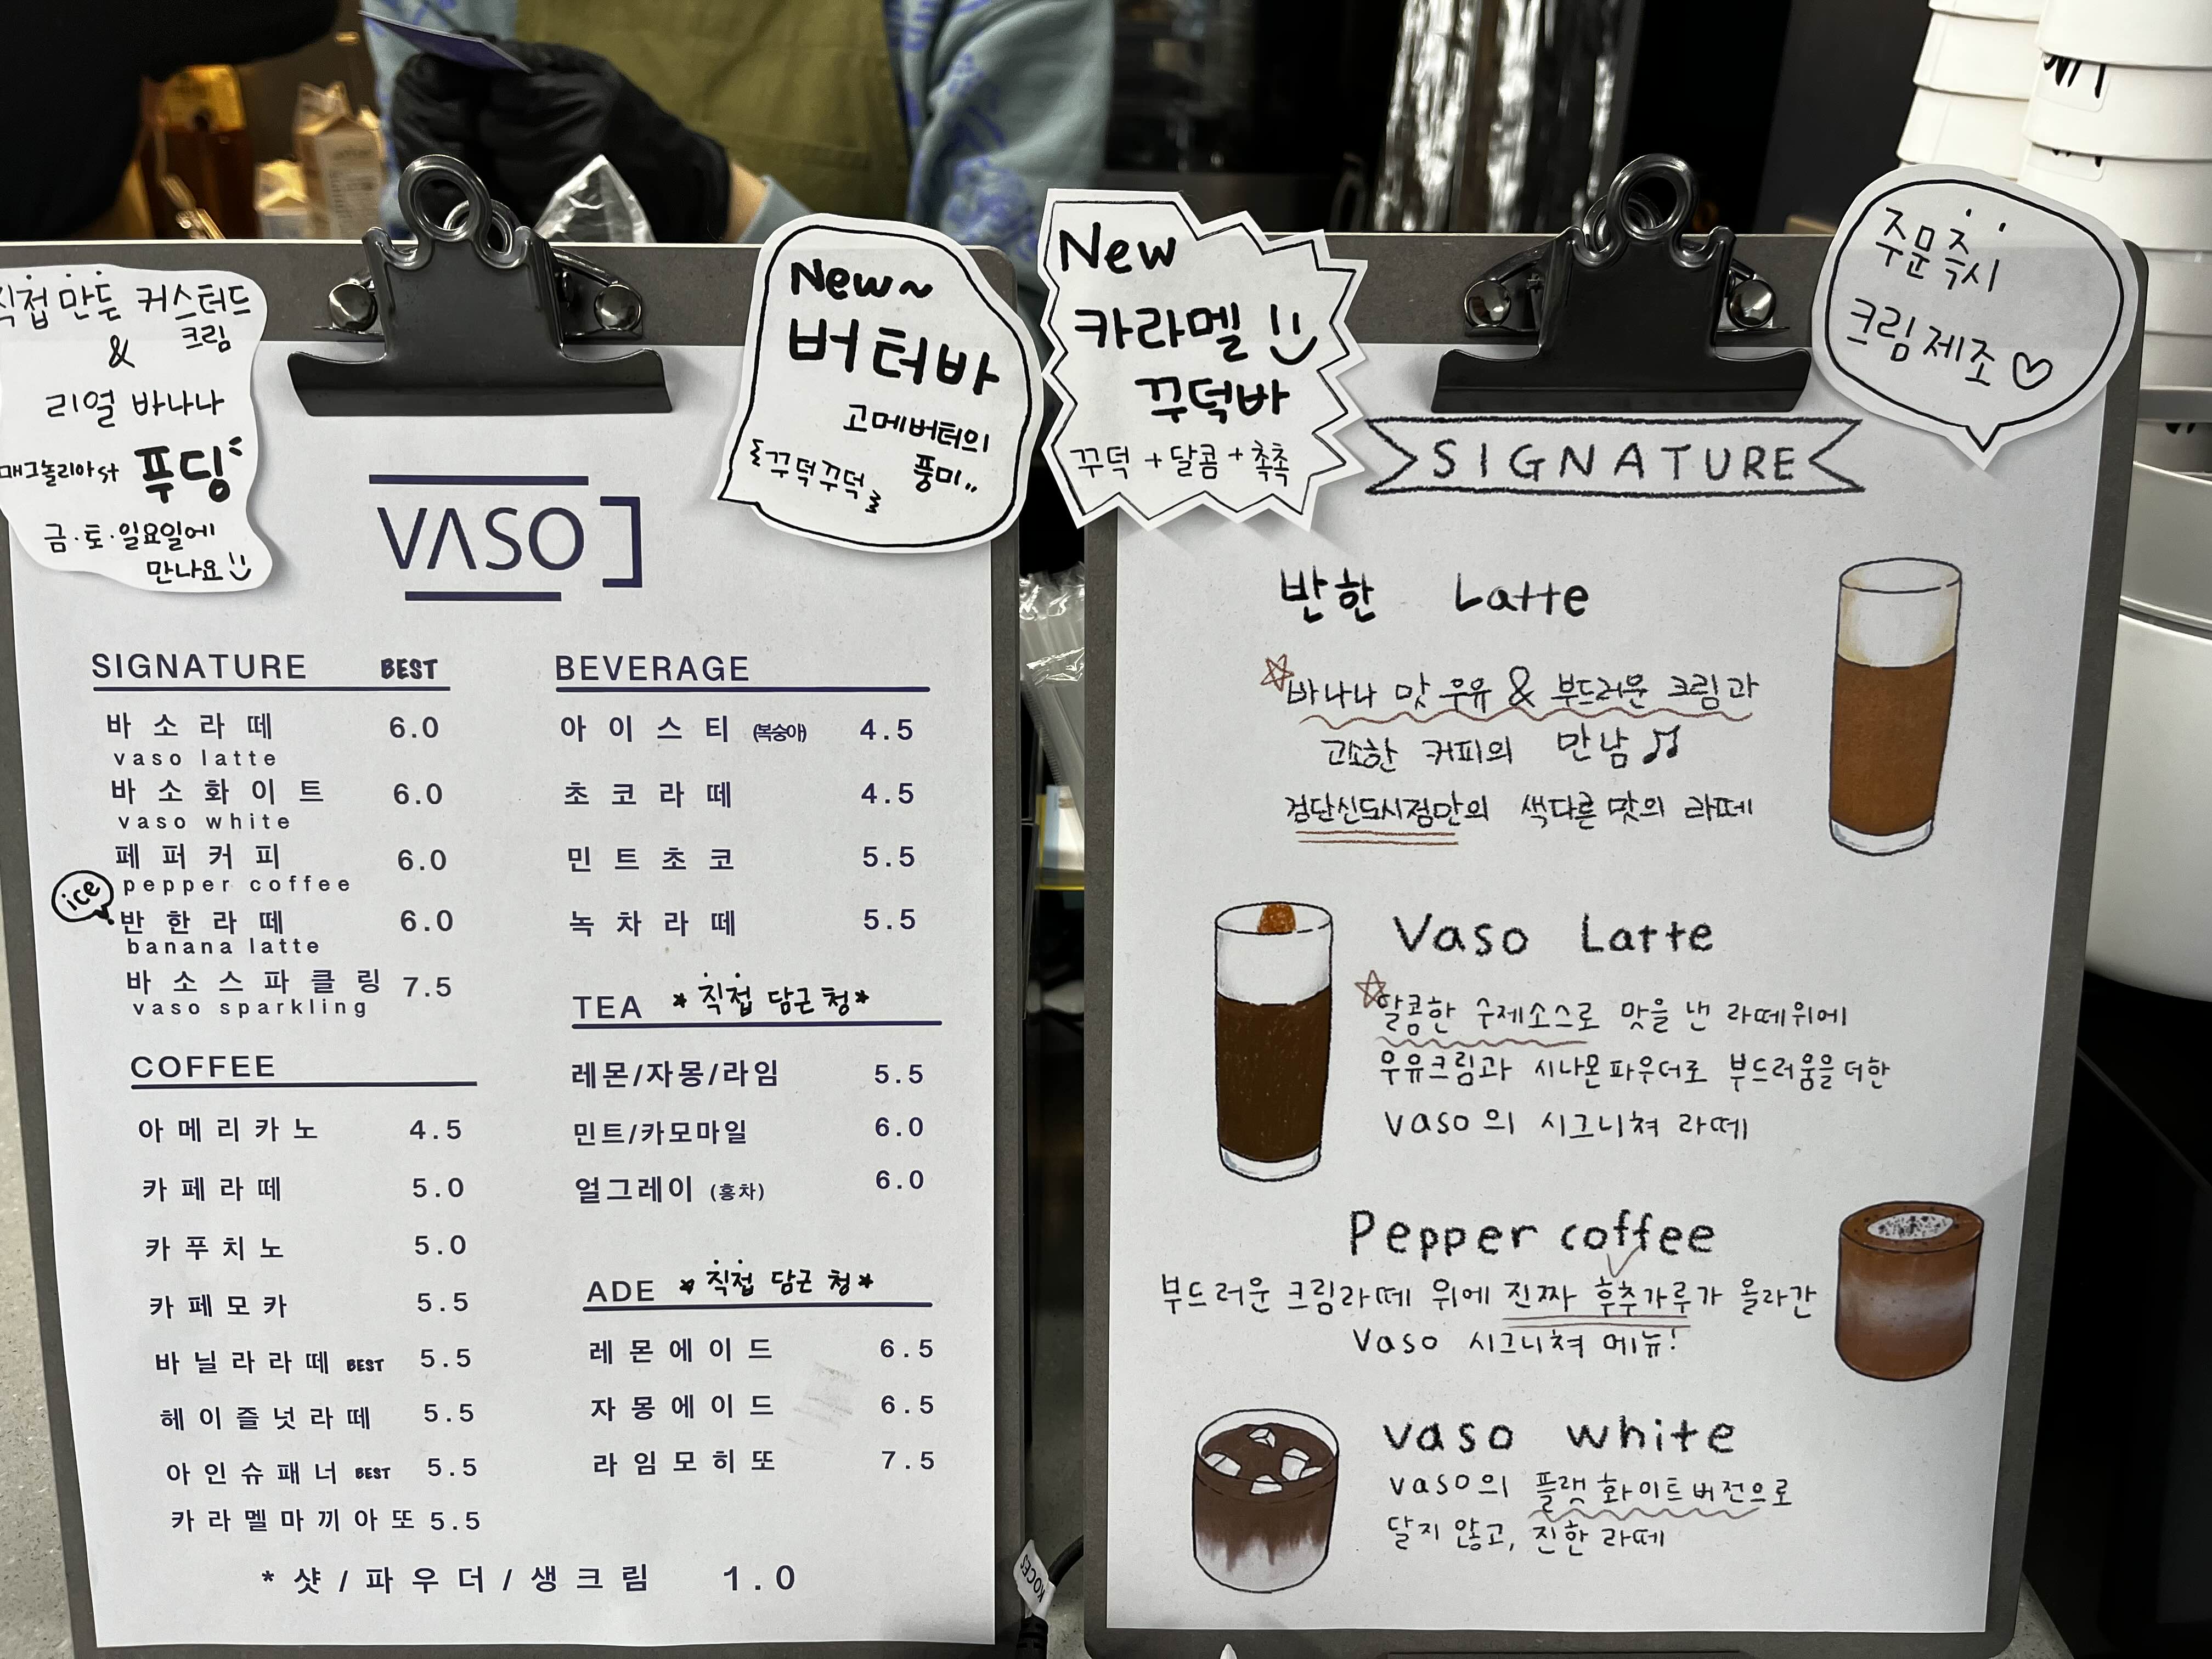 직접 만든 커스터드
크림
&
리얼 바나나
매그놀리아st 푸딩
금·토·일요일에
만나요
New~
버터바
고메버터의
풍미..
꾸덕꾸덕
VASO
SIGNATURE BEST
바소라떼 6.0
vaso latte
바소화이트 6.0
vaso white
페퍼커피 6.0
pepper coffee
ice
반한라떼 6.0
banana latte
바소스파클링 7.5
vaso sparkling
COFFEE
아메리카노 4.5
카페라떼 5.0
카푸치노 5.0
카페모카 5.5
바닐라라떼 BEST 5.5
헤이즐넛라떼 5.5
아인슈패너 BEST 5.5
카라멜마끼아또 5.5
BEVERAGE
아이스티 (복숭아) 4.5
초코라떼 4.5
민트초코 5.5
녹차라떼 5.5
TEA *직접 담근 청*
레몬/자몽/라임 5.5
민트/카모마일 6.0
얼그레이 (홍차) 6.0
ADE *직접 담근 청*
레몬에이드 6.5
자몽에이드 6.5
라임모히또 7.5
* 샷/파우더/생크림 1.0
New
카라멜
꾸덕바
꾸덕+달콤+촉촉
주문즉시
크림제조♡
SIGNATURE
반한 Latte
☆바나나 맛 우유 & 부드러운 크림과
고소한 커피의 만남♫
검단신도시점만의 색다른 맛의 라떼
Vaso Latte
☆달콤한 수제소스로 맛을 낸 라떼위에
우유크림과 시나몬파우더로 부드러움을 더한
vaso의 시그니쳐 라떼
Pepper coffee
부드러운 크림라떼 위에 진짜 후추가루가 올라간
Vaso 시그니쳐 메뉴!
vaso white
vaso의 플랫화이트버전으로
달지 않고, 진한 라떼
KOCES